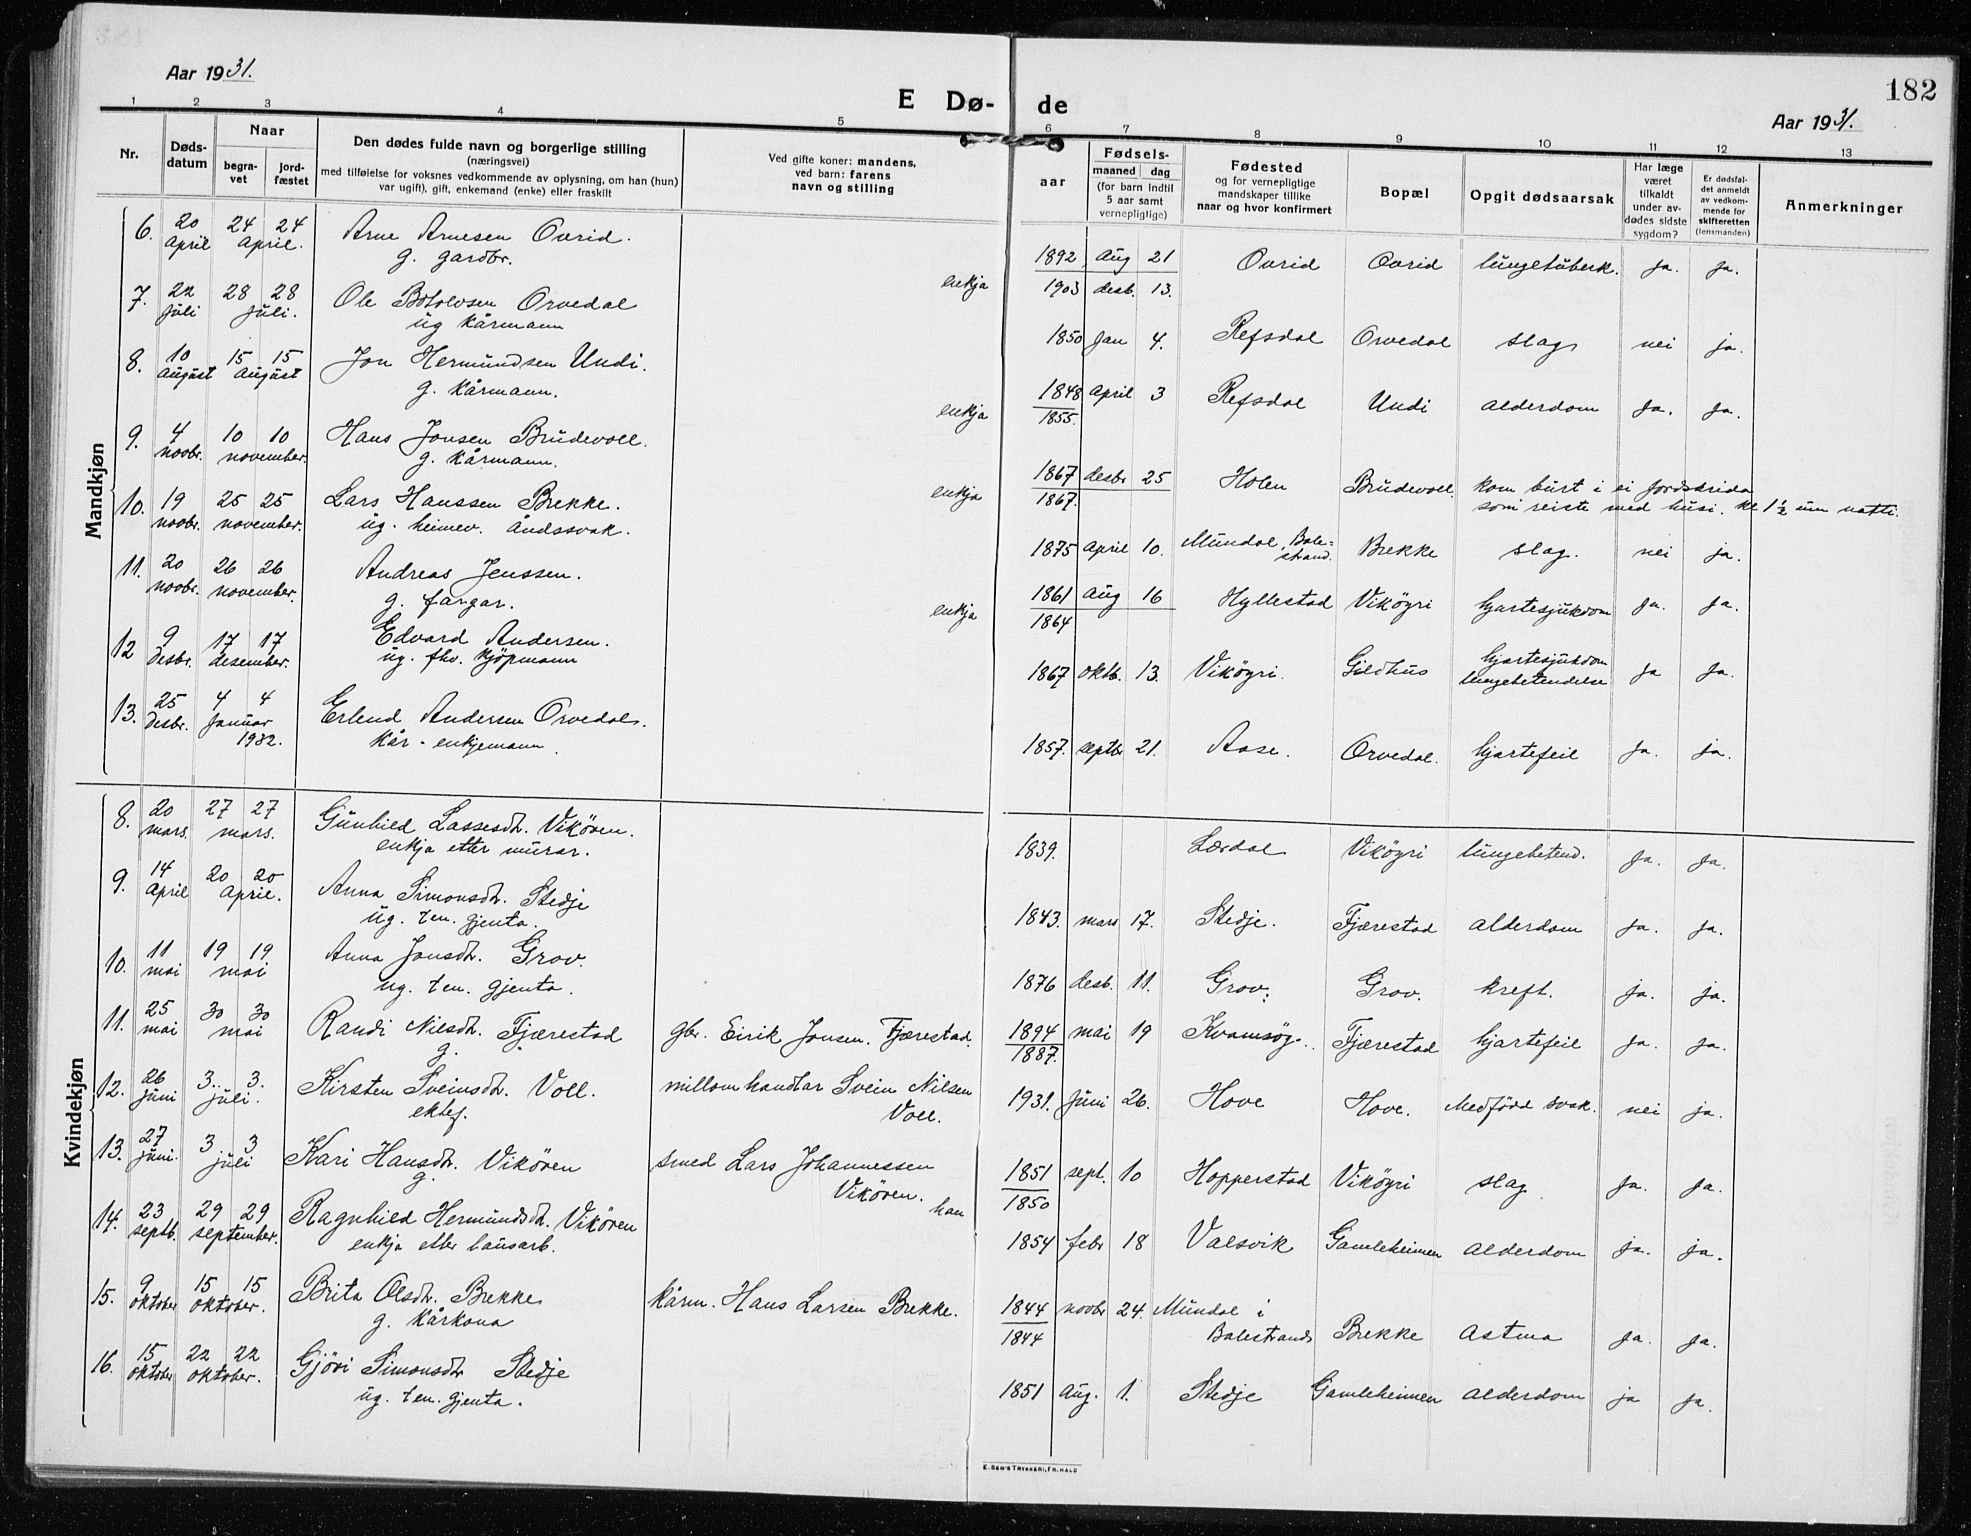 Aar 1931.
E Dø- de
182
Aar 1931.
1 2 3 4 5 6 7 8 9 10 11 12 13
Nr.
Døds-
datum
Naar
begra-
vet
jord-
fæstet
Den dødes fulde navn og borgerlige stilling
(næringsvei)
med tilføielse for voksnes vedkommende av oplysning, om han (hun)
var ugift), gift, enkemand (enke) eller fraskilt
Ved gifte koner: mandens,
ved barn: farens
navn og stilling
Fødsels-
aar
maaned dag
(for barn indtil
5 aar samt
vernepligtige)
Fødested
og for vernepligtige
mandskaper tillike
naar og hvor konfirmert
Bopæl
Opgit dødsaarsak
Har læge
været
tilkaldt
under av-
dødes sidste
sygdom?
Er dødsfal-
det anmeldt
av vedkom-
mende for
skifteretten
(lensmanden)
Anmerkninger
Mandkjøn
6. 20 24 24 Arne Arnesen Ovrid. 1892 Aug 21 Ovrid Ovrid lungetuberk. ja. ja.
April April. g. gardbr. enkja 1903 desb. 13.
7. 22 28 28 Ole Botolvsen Orvedal 1850 Jan 4. Refsdal Orvedal slag nei ja.
juli juli. ug kårmann
8. 10 15 15 Jon Hermundsen Undi. 1848 April 3 Refsdal Undi alderdom ja. ja.
august august g. kårmann. enkja 1855.
9. 4 10 10 Hans Jonsen Brudevoll. 1867 desbr 25 Holen Brudevoll kom burt i ei jordskrida
novbr. november. g. kårmann. enkja 1867. som reiste med husi. kl 1½ um natti.
10. 19 25 25 Lars Hanssen Brekke. 1875 April 10. Mundal, Bale-
strand. Brekke slag. nei ja.
novbr. november. ug. heimev. åndssvak.
11. 20 26 26 Andreas Jenssen. 1861 Aug 16 Hyllestad Vikøyri hjartesjukdom ja. ja.
novbr. november. g. fargar. enkja 1864
12 9 17 17 Edvard Andersen. 1867 oktb. 13. Vikøyri. Gildhus hjartesjukdom
lungebetendelse ja ja.
desbr. desember. ug. fhv. kjøpmann
13. 25 4 4 Erlend Andersen Orvedal. 1857. septbr 21. Aase. Orvedal. hjartefeil ja. ja.
desbr. januar kår - enkjemann.
1932.
Kvindekjøn
8. 20 27 27 Gunhild Lassesdtr. Vikøren. 1839. Lærdal Vikøyri lungebetend. ja. ja.
mars. mars. enkja etter murar.
9. 14 20 20 Anna Simonsdtr. Stedje 1843. mars 17. Stedje. Fjærestad alderdom ja. ja.
April April. ug. ten. gjenta.
10. 11 19 19. Anna Jonsdtr. Grov. 1876 desb. 11. Grov. Grov. kreft. ja. ja.
mai mai ug. ten. gjenta.
11. 25 30 30 Randi Nilsdtr. Fjærestad gbr. Eirik Jonsen. Fjærestad. 1894 mai 19 Kvamsøy. Fjærestad hjartefeil ja. ja.
mai mai g. 1887.
12. 26 3. 3. Kirsten Sveinsdtr. Voll. millomhandlar Svein Nilsen 1931. juni 26. Hove Hove. Medfødd svak. nei ja.
juni juli. ektef. Voll.
13. 27 3 3 Kari Hansdtr. Vikøren smed Lars Johannessen 1851 sept. 10 Hopperstad Vikøyri slag ja. ja.
juni. juli g. Vikøren. han 1850
14. 23 29 29 Ragnhild Hermundsdt. Vikøren 1854 febr 18 Valsvik Gamleheimen alderdom ja. ja.
septb. september. enkja etter lausarb.
15. 9 15 15 Brita Olsdtr. Brekke kårm. Hans Larsen Brekke. 1844 novbr 24. Mundal i
Balestrand Brekke astma ja. ja.
oktober oktober. g. kårkona 1844
16. 15 22 22 Gjøri Simonsdtr Stedje 1851 Aug. 1. Stedje Gamleheimen alderdom ja ja.
oktober oktober. ug. ten. gjenta.
E. SEM'S TRYKKERI, FR.HALD